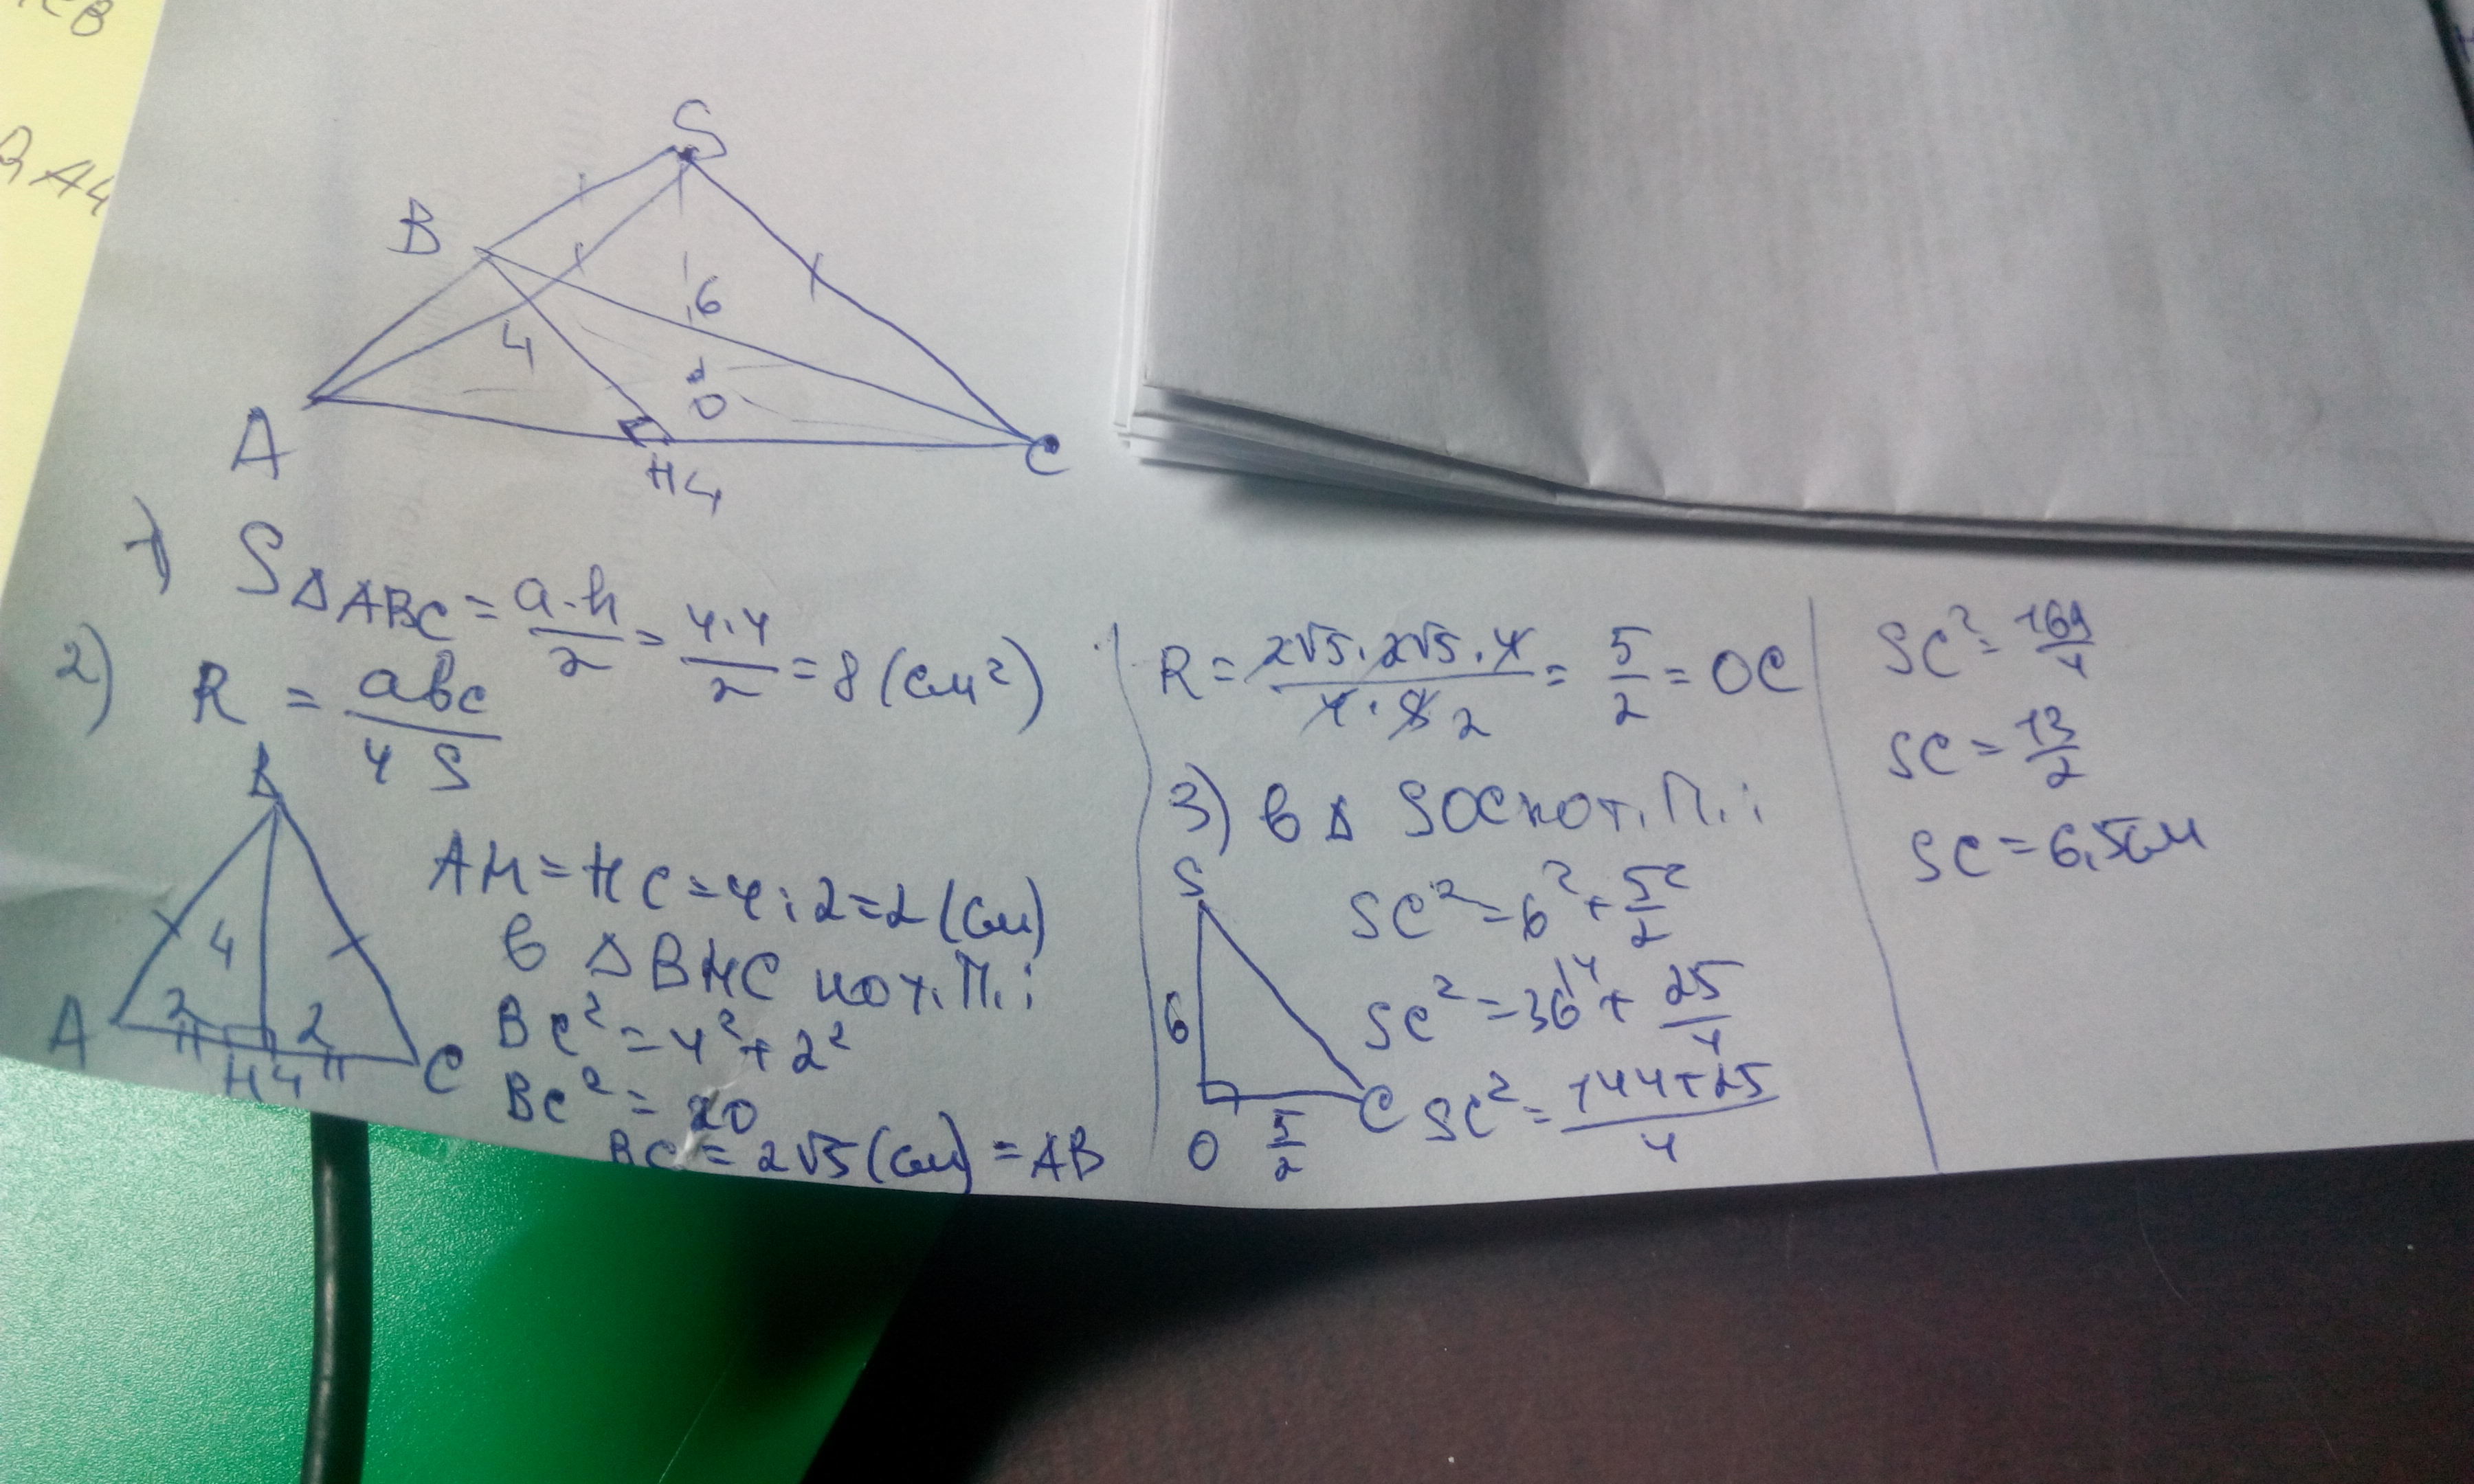 S
B
6
4
O
A
H 4
C
1) S△ABC = a·h/2 = 4·4/2 = 8 (см²)
2) R = abc/4S
B
4
2 2
A H 4 C
AH = HC = 4:2 = 2 (см)
в △BHC по т.П.:
BC² = 4² + 2²
BC² = 20
BC = 2√5 (см) = AB
R = 2√5·2√5·4/4·8 2 = 5/2 = OC
3) в △ SOC по т.П.:
S
6
O 5/2 C
SC² = 6² + 5²/2
SC² = 36 + 25/4
SC² = 144+25/4
SC² = 169/4
SC = 13/2
SC = 6,5 см